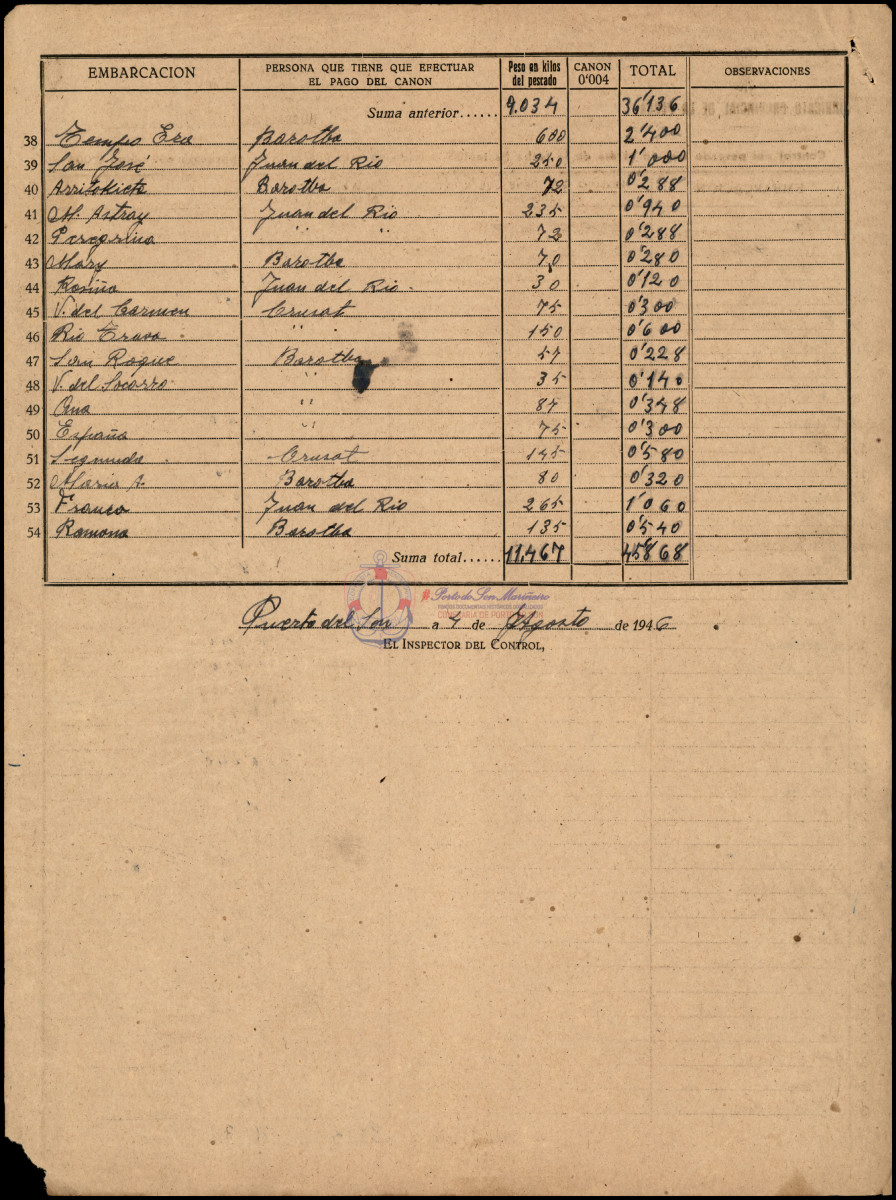 EMBARCACION PERSONA QUE TIENE QUE EFECTUAR EL PAGO DEL CANON Peso en kilos del pescado CANON 0'004 TOTAL OBSERVACIONES
Suma anterior...... 9.034 36'136
38 Tempo Era Barotba 600 2'400
39 San José Juan del Rio 250 1'000
40 Arritokieta Barotba 72 0'288
41 M. Astray Juan del Rio 235 0'940
42 Peregrina " " " 72 0'288
43 Mary Barotba 70 0'280
44 Rosiña Juan del Rio 30 0'120
45 V. del Carmen Crusat 75 0'300
46 Rio " 150 0'600
47 San Roque Barotba 57 0'228
48 V. del Socorro " 35 0'140
49 Ana " 87 0'348
50 España " 75 0'300
51 Segunda Crusat 145 0'580
52 Maria A. Barotba 80 0'320
53 Franco Juan del Rio 265 1'060
54 Ramona Barotba 135 0'540
Suma total...... 11.467 45'868
#Porto do Son Mariñeiro
Puerto del Son a 4 de Agosto de 1946
EL INSPECTOR DEL CONTROL,